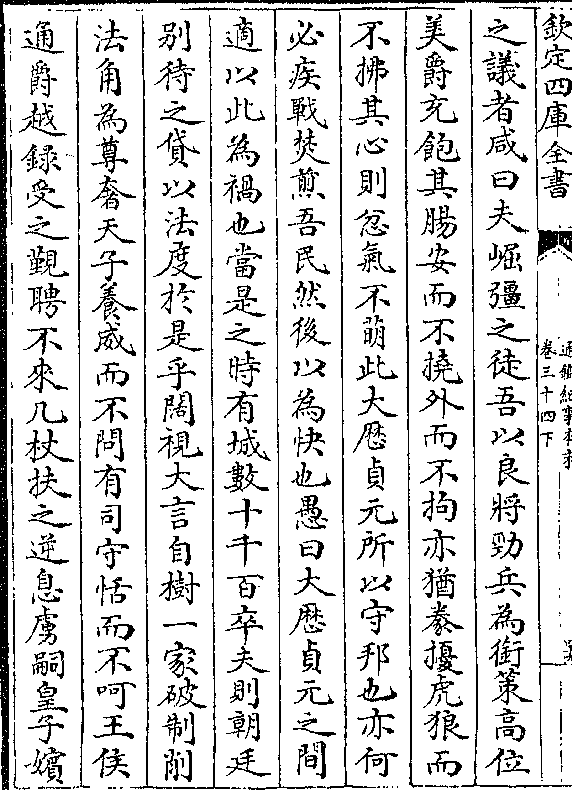 欽定四庫全書
通鑑紀事本末
卷三十四下
之議者咸曰夫崛彊之徒吾以良將勁兵為銜策高位
美爵充飽其腸安而不撓外而不拘亦猶豢擾虎狼而
不拂其心則忿氣不萌此大厯貞元所以守邦也亦何
必疾戰焚煎吾民然後以為快也愚曰大厯貞元之間
適以此為禍也當是之時有城數十千百卒夫則朝廷
别待之貸以法度於是乎闊視大言自樹一家破制削
法角為尊奢天子養威而不問有司守恬而不呵王侯
通爵越錄受之覲聘不來几杖扶之逆息虜嗣皇子嬪